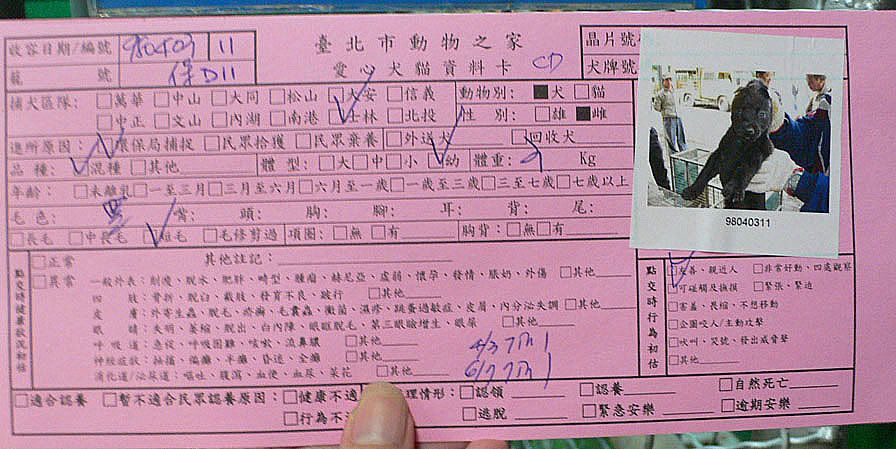 收容日期/編號 980403 11
臺北市動物之家
晶片號
籠號 保D11
愛心犬貓資料卡 CD
犬牌號
捕犬區隊: □萬華 □中山 □大同 □松山 □大安 □信義 動物別: ■犬 □貓
□中正 □文山 □內湖 □南港 □士林 □北投 性別: □雄 ■雌
進所原因: □環保局捕捉 □民眾拾獲 □民眾棄養 □外送犬 □回收犬
品種: □混種 □其他 體型: □大 □中 □小 □幼 體重: Kg
年齡: □未離乳 □一至三月 □三月至六月 □六月至一歲 □一歲至三歲 □三至七歲 □七歲以上
毛色: 黑 嘴: 頭: 胸: 腳: 耳: 背: 尾:
□長毛 □中長毛 □短毛 □毛修剪過 項圈: □無 □有 胸背: □無 □有
98040311
點交時健康狀況初估
□正常 其他註記:
□異常 一般外表: 削瘦、脫水、肥胖、畸型、腫瘤、赫尼亞、虛弱、懷孕、發情、脹奶、外傷 □其他
四肢: 骨折、脫臼、截肢、發育不良、跛行 □其他
皮膚: 外寄生蟲、脫毛、疥癬、毛囊蟲、黴菌、濕疹、跳蚤過敏症、皮屑、內分泌失調 □其他
眼睛: 失明、萎縮、脫出、白內障、眼瞼脫毛、第三眼瞼增生、眼屎 □其他
呼吸道: 急促、呼吸困難、咳嗽、流鼻膿 □其他
神經症狀: 抽搐、偏癱、半癱、昏迷、全癱 □其他
消化道/泌尿道: 嘔吐、腹瀉、血便、血尿、菜花 □其他
點交時行為初估
□友善、親近人 □非常好動、四處觀察
□可碰觸及撫摸 □緊張、緊迫
□害羞、畏縮、不想移動
□企圖咬人/主動攻擊
□吠叫、哭號、發出威脅聲
□其他
□適合認養 □暫不適合民眾認養原因: □健康不適 理情形: □認領 □認養 □自然死亡
□行為不 □逃脫 □緊急安樂 □逾期安樂